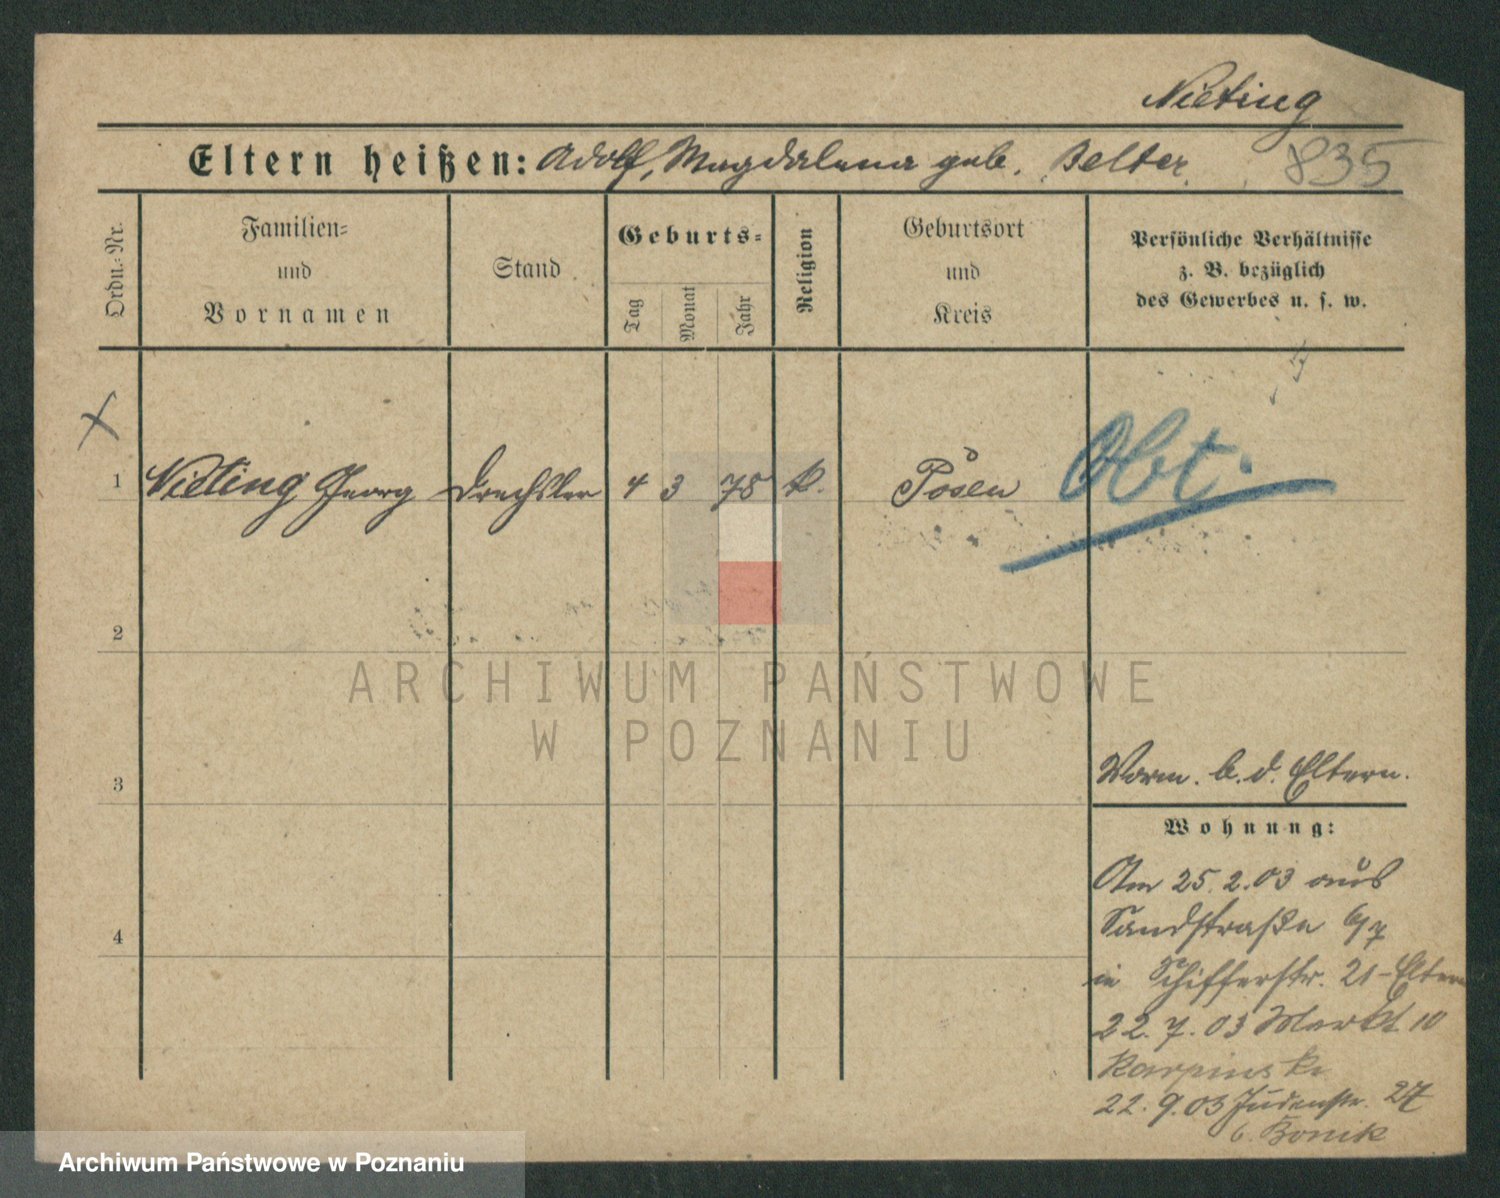 Nieting
Eltern heißen: Adolf, Magdalena geb. Belter. 835
Ordn.-Nr.
Familien-
und
Vornamen
Stand
Geburts-
Tag
Monat
Jahr
Religion
Geburtsort
und
Kreis
Persönliche Verhältnisse
z. B. bezüglich
des Gewerbes u. s. w.
1 Nieting Georg Drechsler 4 3 78 k. Posen
Obt.
2
ARCHIWUM PAŃSTWOWE
W POZNANIU
3
Vorm. b. d. Eltern.
Wohnung:
Am 25.2.03 aus
Sandstraße 6/7
4
in Schifferstr. 21 - Eltern
22.7.03 Markt 10
Karpinski
22.9.03 Judenstr. 27
b. Bonik
Archiwum Państwowe w Poznaniu